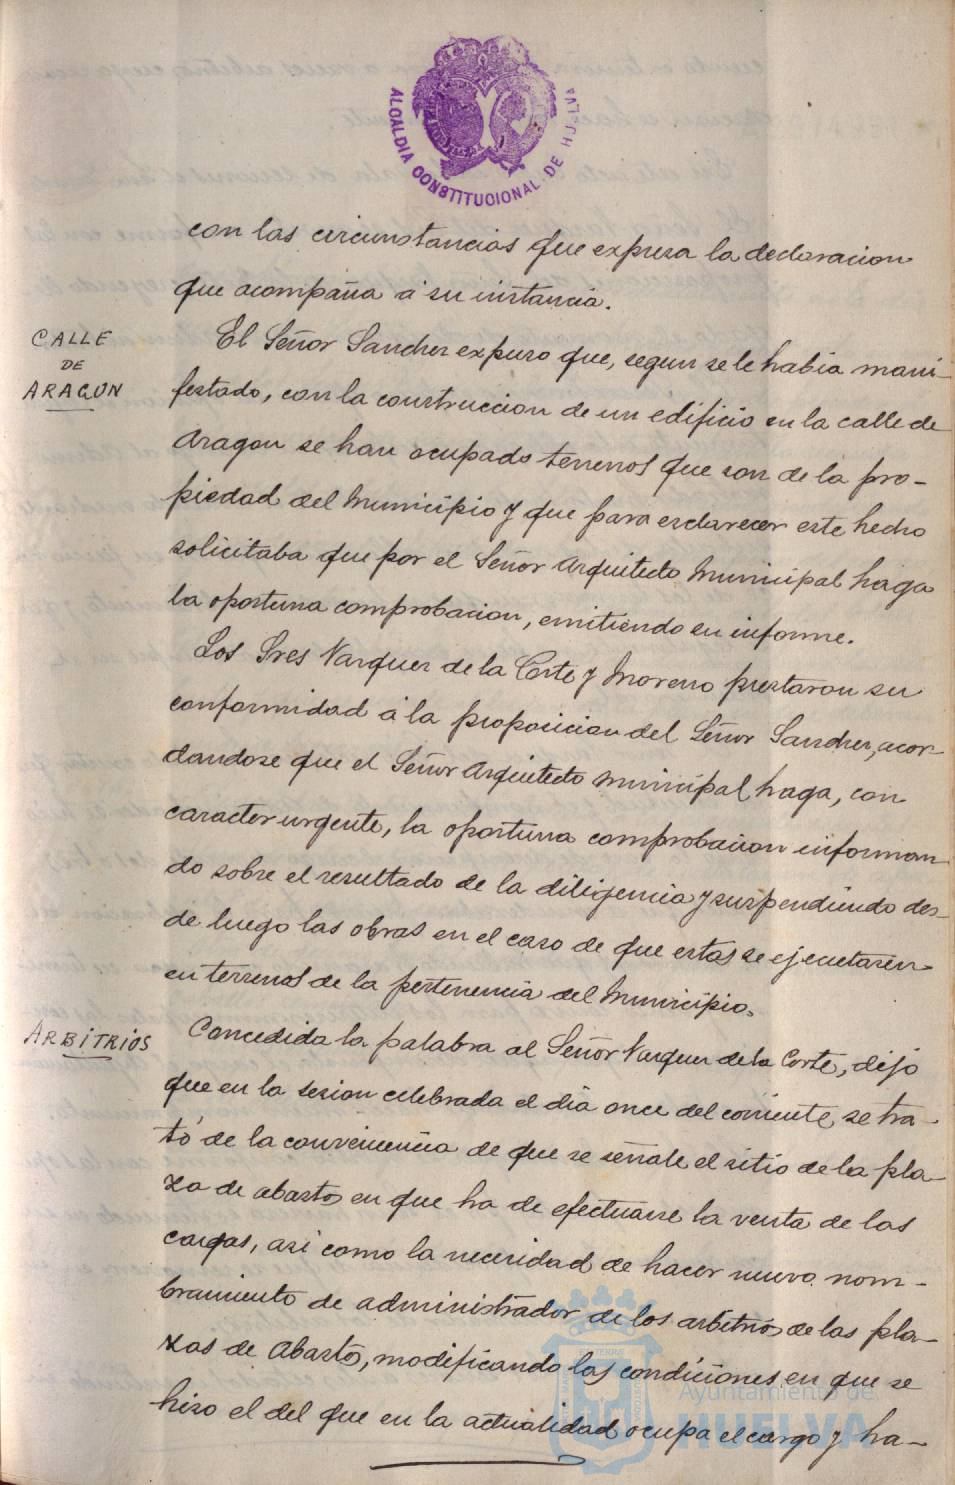 ALCALDIA CONSTITUCIONAL DE HUELVA
con las circunstancias que expresa la declaracion
que acompaña á su instancia.
CALLE
DE
ARAGON
El Señor Sanchez expuso que, segun se le habia mani-
festado, con la construccion de un edificio en la calle de
Aragon se han ocupado terrenos que son de la pro-
piedad del Municipio y que para esclarecer este hecho
solicitaba que por el Señor Arquitecto Municipal haga
la oportuna comprobacion, emitiendo su informe.
Los Sres Vazquez de la Corte y Moreno prestaron su
conformidad á la proposicion del Señor Sanchez, acor-
dandose que el Señor Arquitecto municipal haga, con
caracter urgente, la oportuna comprobacion informan-
do sobre el resultado de la diligencia y suspendiendo des-
de luego las obras en el caso de que estas se ejecutasen
en terrenos de la pertenencia del Municipio.
ARBITRIOS
Concedida la palabra al Señor Vazquez de la Corte, dijo
que en la sesion celebrada el dia once del corriente se tra-
tó de la conveniencia de que se señale el sitio de la pla-
za de abastos en que ha de efectuarse la venta de las
cargas, asi como la necesidad de hacer nuevo nom-
bramiento de administrador de los arbitrios de las pla-
zas de Abastos, modificando las condiciones en que se
hizo el del que en la actualidad ocupa el cargo y ha-
Ayuntamiento de
HUELVA